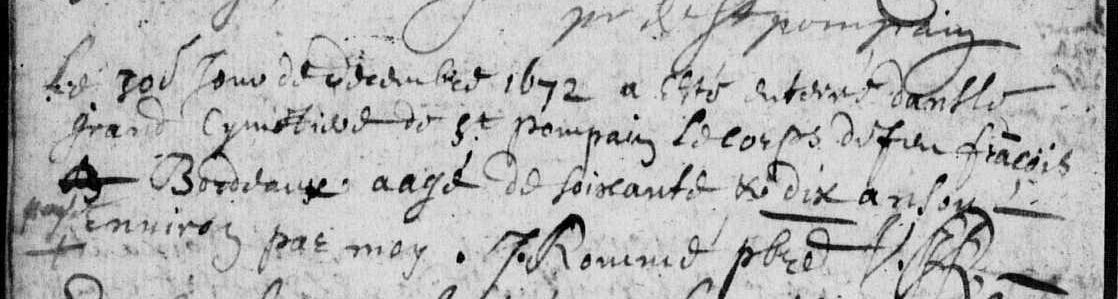 pr de St pompain
Le 30e Jour de decembre 1672 a este enterré dans le
grand Cymetiere de St pompain le corps de feu francois
Bordeaux aagé de soixante & dix ans ou
environ par moy . J. Rommé pbre